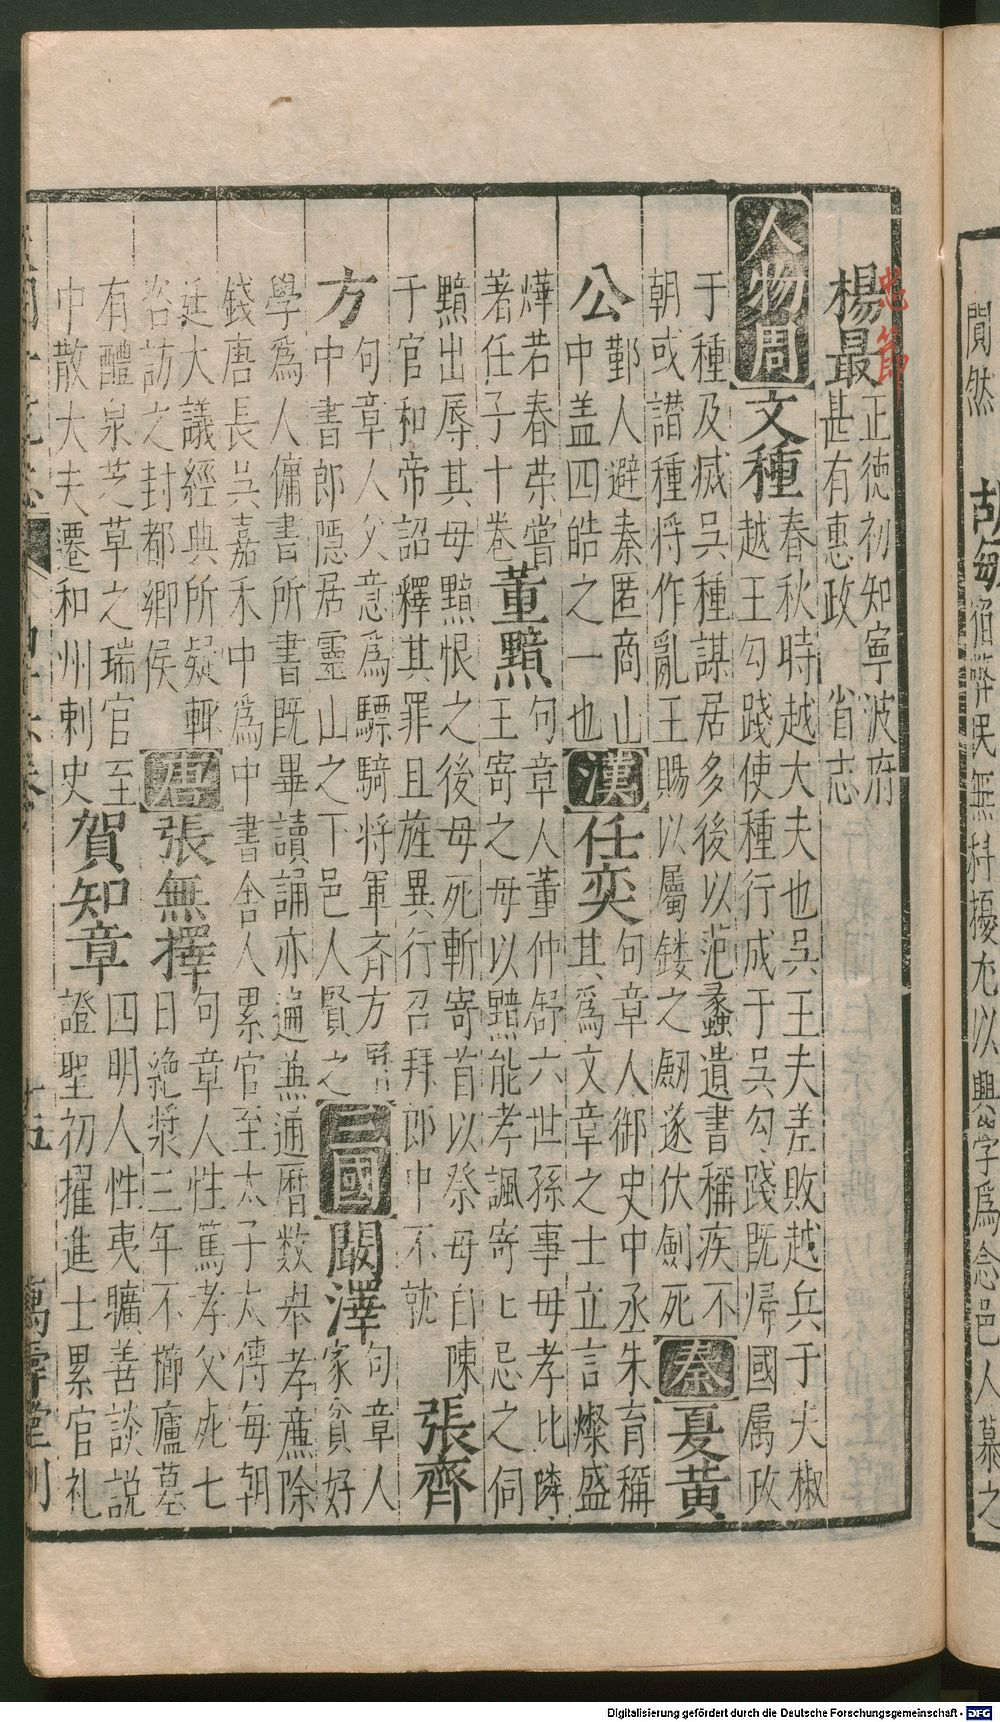 閒然
無科擾尤以興学為念邑人慕之
忠節
楊最
正德初知寧波府
甚有惠政 省志
人物周
文種
春秋時越大夫也吳王夫差敗越兵于夫椒
越王勾踐使種行成于吳勾踐既帰國属政
于種及㓕吳種謀居多後以范蠡遺書稱疾不
朝或譖種将作亂王賜以屬鏤之劒遂伏劍死
秦
夏黃
公
鄞人避秦匿商山
中盖四皓之一也
漢
任奕
句章人御史中丞朱育稱
其爲文章之士立言燦盛
燁若春荣嘗
著任子十卷
董黯
句章人董仲舒六世孫事母孝比隣
王寄之母以黯能孝諷寄七忌之伺
黯出辱其母黯恨之後母死斬寄首以祭母自陳
于官和帝詔釋其罪且旌異行召拜郎中不就
張齊
方
句章人父意爲驃騎将軍齐方
中書郎隱居靈山之下邑人賢之
三國
闞澤
句章人
家貧好
學爲人傭書所書既畢讀誦亦遍兼通曆数舉孝廉除
錢唐長吳嘉禾中爲中書舍人累官至太子太傅每朝
廷大議經典所疑輒
咨訪之封都鄉侯
唐
張無擇
句章人性篤孝父死七
日絶漿三年不櫛廬墓
有醴泉芝草之瑞官至
中散大夫遷和州刺史
賀知章
四明人性夷曠善談説
證聖初擢進士累官礼
十五
萬壽堂刊
Digitalisierung gefördert durch die Deutsche Forschungsgemeinschaft - DFG